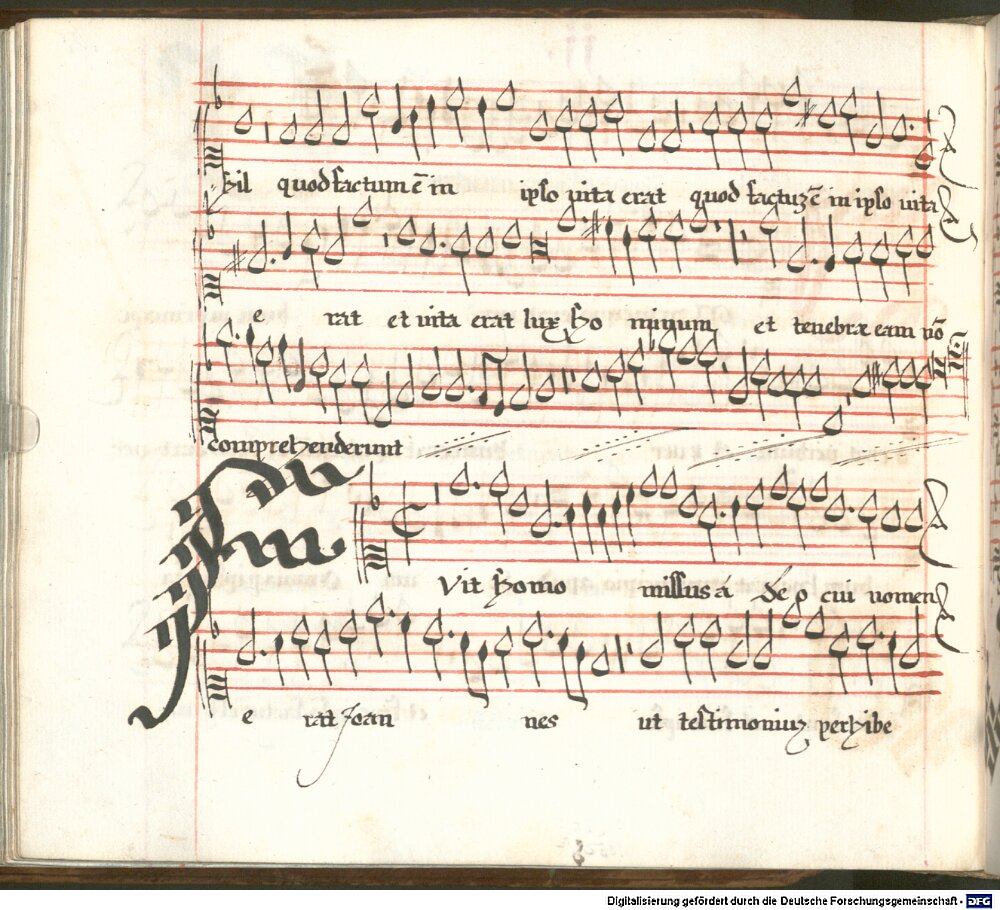 hil quod factum ē in ipso uita erat quod factuz ē in ipso uita
e rat et uita erat lux ho minum et tenebræ eam nō
comprehenderunt
Fuit homo missus a deo cui nomen
e rat Joan nes ut testimoniuz perhibe
Digitalisierung gefördert durch die Deutsche Forschungsgemeinschaft - DFG